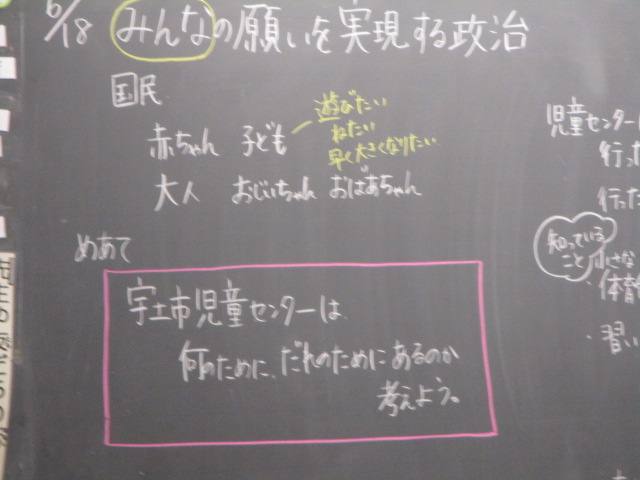 6/18 みんなの願いを実現する政治
国民
赤ちゃん 子ども
遊びたい
ねたい
早く大きくなりたい
大人 おじいちゃん おばあちゃん
めあて
宇土市児童センターは
何のために、だれのためにあるのか
考えよう。
児童センター
行った
行った
知っている
こと
小さな
・体育
・習い